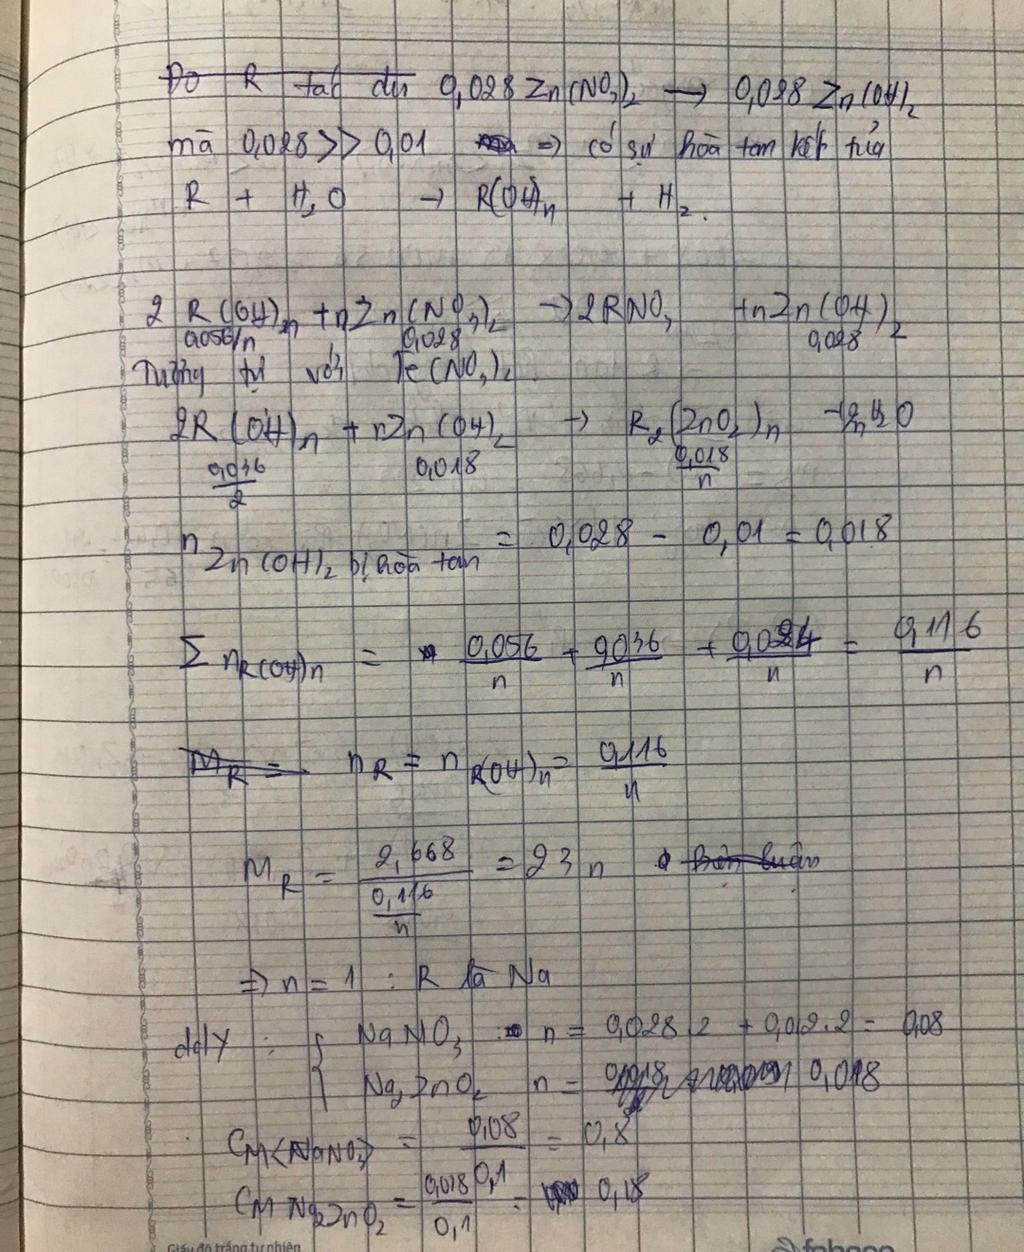 Do R tác dụ 0,028 Zn(NO3)2 → 0,028 Zn(OH)2
mà 0,028 >> 0,01 ⇒ có sự hòa tan kết tủa
R + H2O → R(OH)n + H2.
2 R(OH)n + nZn(NO3)2 → 2RNO3 + nZn(OH)2
0,056/n 0,028 0,028
Tương tự với Fe(NO3)2
2R(OH)n + nZn(OH)2 → R2(ZnO2)n + 2nH2O
0,036/2 0,018 0,018/n
n Zn(OH)2 bị hòa tan = 0,028 - 0,01 = 0,018
Σ nR(OH)n = 0,056/n + 0,036/n + 0,024/n = 0,116/n
MR = nR = nR(OH)n = 0,116/n
MR = 2,668/(0,116/n) = 23n Biện luận
⇒ n = 1 : R là Na
ddY : { NaNO3 : n = 0,028.2 + 0,012.2 = 0,08
Na2ZnO2 n = 0,018
CM(NaNO3) = 0,08/0,1 = 0,8
CM Na2ZnO2 = 0,018/0,1 = 0,18
Giấy đỏ trắng tự nhiên